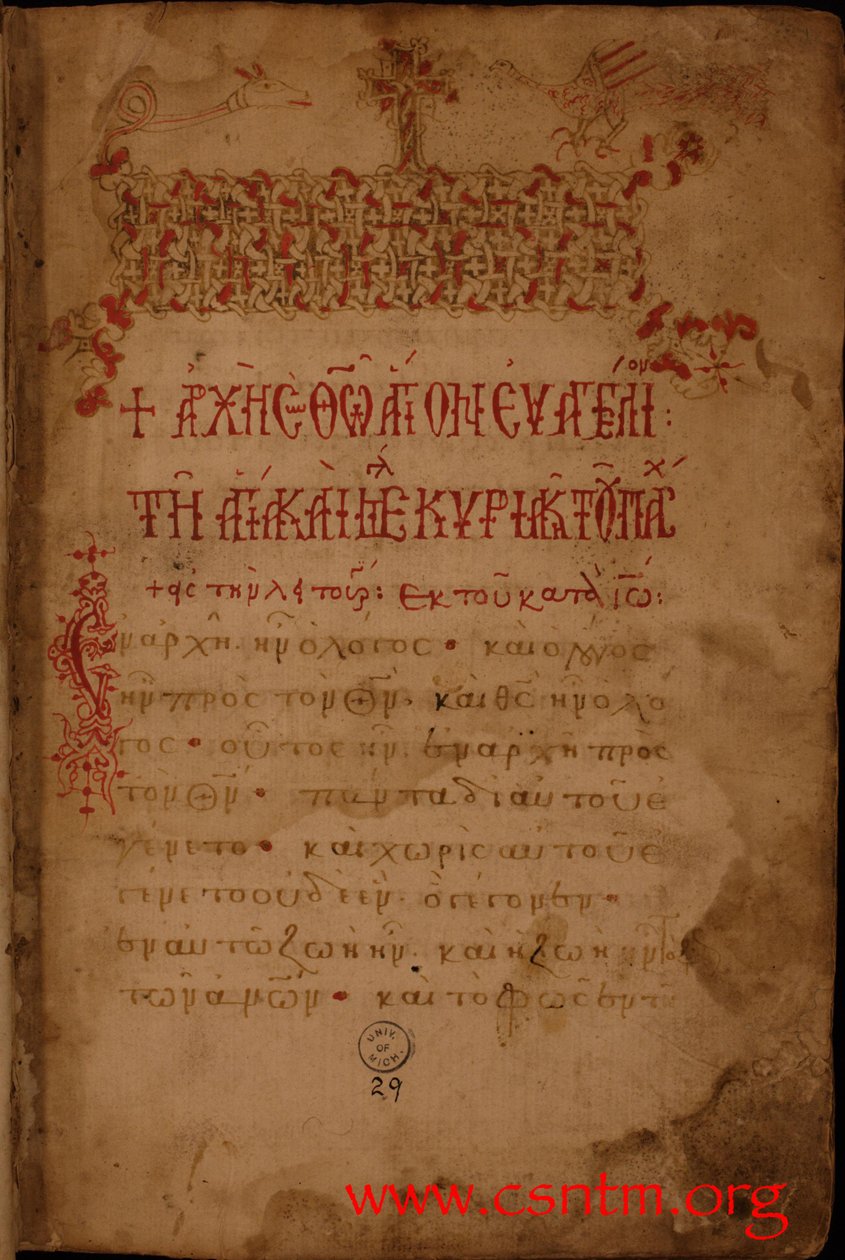 + ἀρχὴ σὺν Θῶ ἁγίον εὐαγγέλιον:
τῆ ἁγία καὶ μεγλ κυριακῆ τοῦ πάσχ
ἐκ τοῦ κατὰ ἰω:
Ἐν ἀρχῆ ἦν ὁ λόγος • καὶ ὁ λόγος
ἦν πρὸς τὸν Θν. καὶ θς ἦν ὁ λό
γος • οὗτος ἦν ἐν ἀρχῆ πρὸς
τὸν Θν • πάντα δι αὐτοῦ ἐ
γένετο • καὶ χωρὶς αὐτοῦ ἐ
γένετο οὐδὲ ἕν. ὃ γέγονεν •
ἐν αὐτῶ ζωὴ ἦν. καὶ ἡ ζωὴ ἦν
τῶν ἀνων • καὶ τὸ φῶς ἐν τῆ
UNIV. OF MICH.
29
www.csntm.org